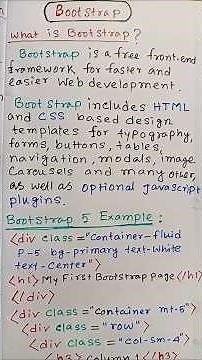 Bootstrap
What is Bootstrap?
Bootstrap is a free front-end
framework for faster and
easier web development.
Bootstrap includes HTML
and CSS based design
templates for typography,
forms, buttons, tables,
navigation, modals, image
Carousels and many other,
as well as optional Javascript
plugins.
Bootstrap 5 Example:
<div class="Container-fluid
P-5 bg-primary text-White
text-Center">
<h1>My First Bootstrap Page</h1>
</div>
<div class="container mt-5">
<div class="row">
<div class="col-sm-4">
<h3>Column 1</h3>